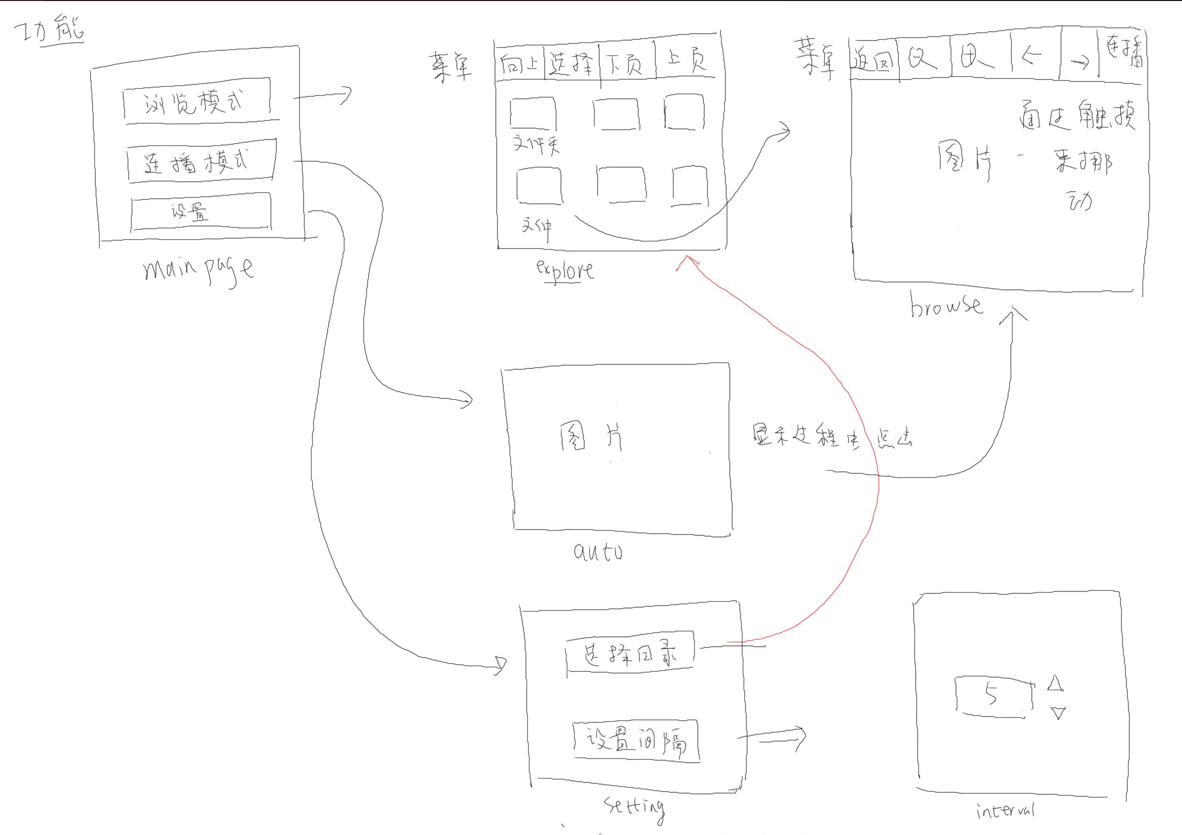 功能
浏览模式
连播模式
设置
main page
菜单
向上 选择 下页 上页
文件夹
文件
explore
菜单
返回 连播
图片
通过触摸
来挪
动
browse
图片
auto
显示过程中点击
选择目录
设置间隔
setting
5
interval